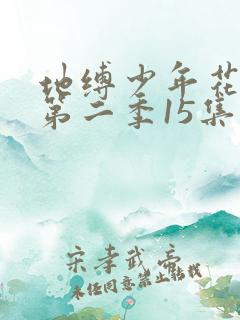 地缚少年花
第二季15集
宋孝武帝
未经同意禁止转载